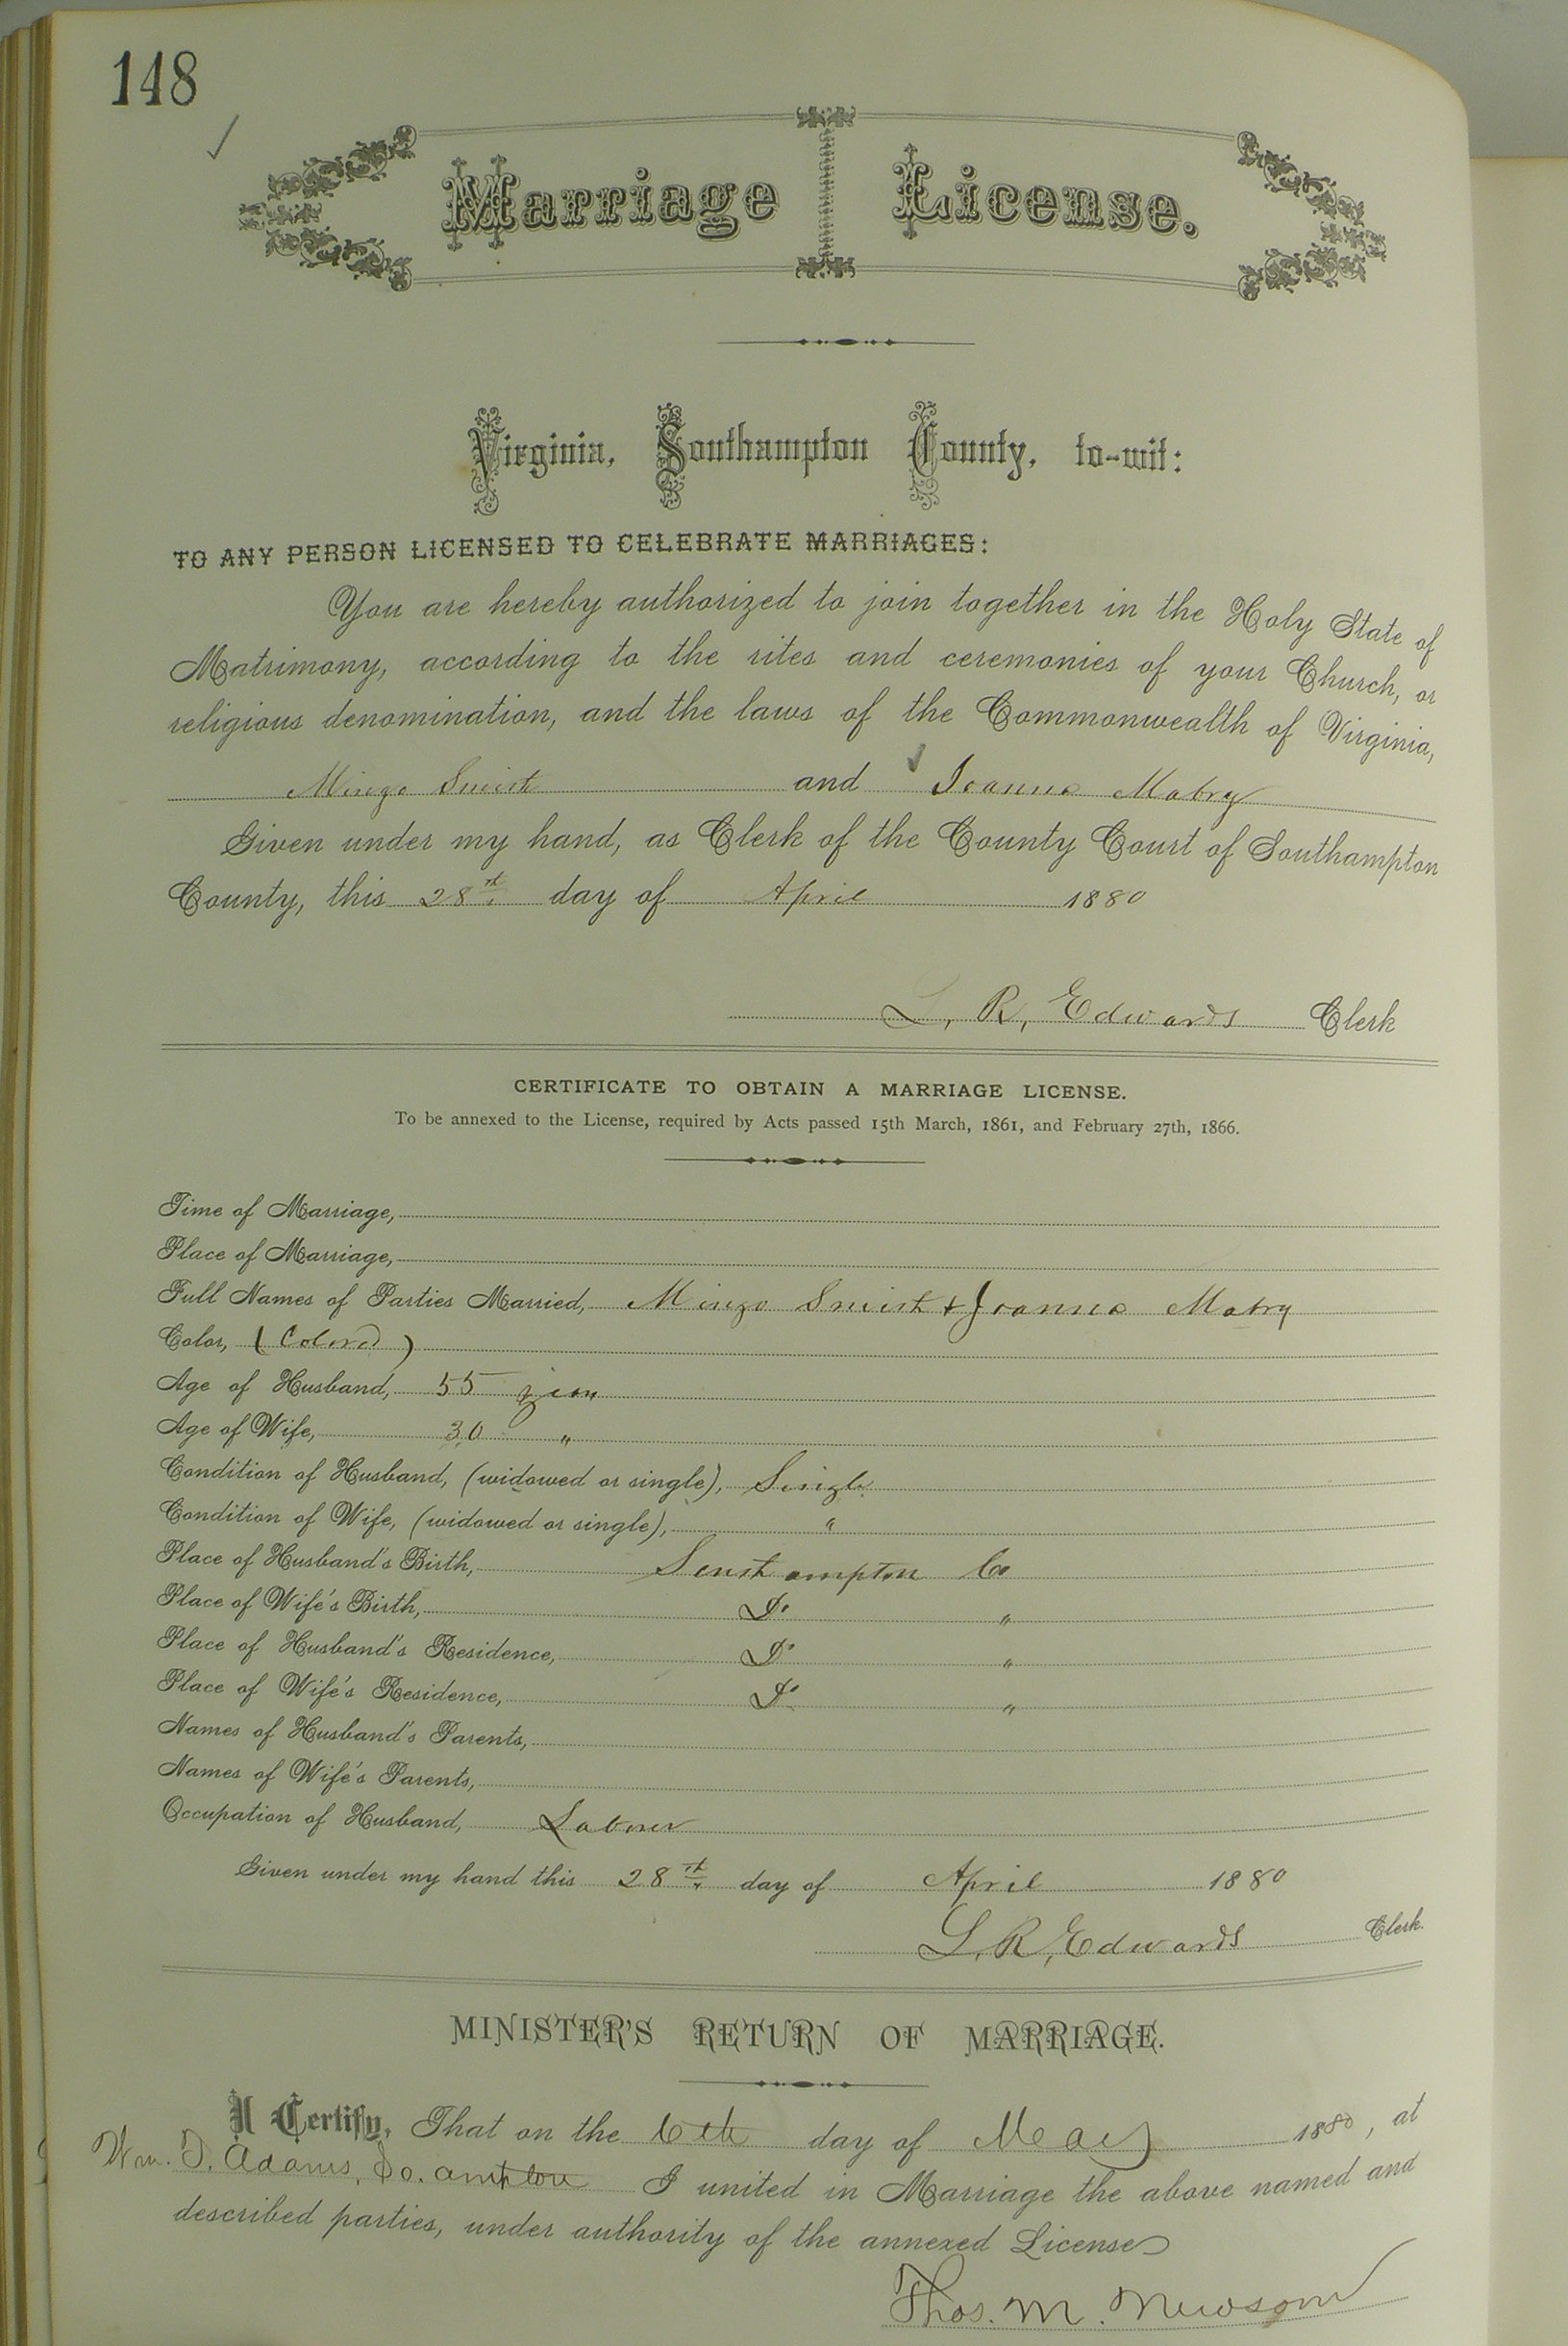 148
Marriage License.
Virginia, Southampton County, to-wit:
TO ANY PERSON LICENSED TO CELEBRATE MARRIAGES:
You are hereby authorized to join together in the Holy State of
Matrimony, according to the rites and ceremonies of your Church, or
religious denomination, and the laws of the Commonwealth of Virginia,
Mingo Smith and Joanna Mabry
Given under my hand, as Clerk of the County Court of Southampton
County, this 28th day of April 1880
L. R. Edwards Clerk
CERTIFICATE TO OBTAIN A MARRIAGE LICENSE.
To be annexed to the License, required by Acts passed 15th March, 1861, and February 27th, 1866.
Time of Marriage,
Place of Marriage,
Full Names of Parties Married, Mingo Smith & Joanna Mabry
Color, (Colored)
Age of Husband, 55 years
Age of Wife, 30 "
Condition of Husband, (widowed or single), Single
Condition of Wife, (widowed or single), "
Place of Husband's Birth, Southampton Co
Place of Wife's Birth, Do "
Place of Husband's Residence, Do "
Place of Wife's Residence, Do "
Names of Husband's Parents,
Names of Wife's Parents,
Occupation of Husband, Laborer
Given under my hand this 28th day of April 1880
L. R. Edwards Clerk.
MINISTER'S RETURN OF MARRIAGE.
I Certify, That on the 6th day of May 1880, at
Wm. D. Adams, So. ampton I united in Marriage the above named and
described parties, under authority of the annexed License
Thos. M. Newsom